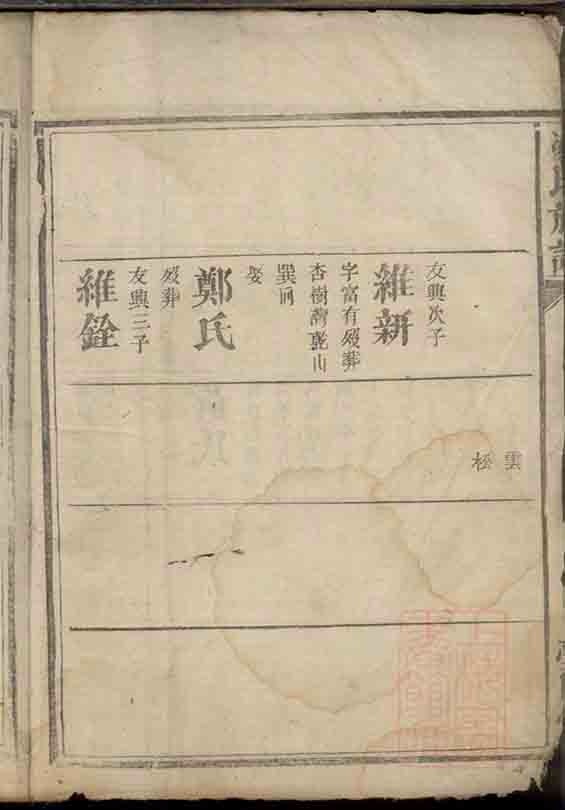 友興次子
維新
字富有歿葬
杏樹灣乾山
巽向
娶
鄭氏
歿葬
友興三子
維銓
雲
松